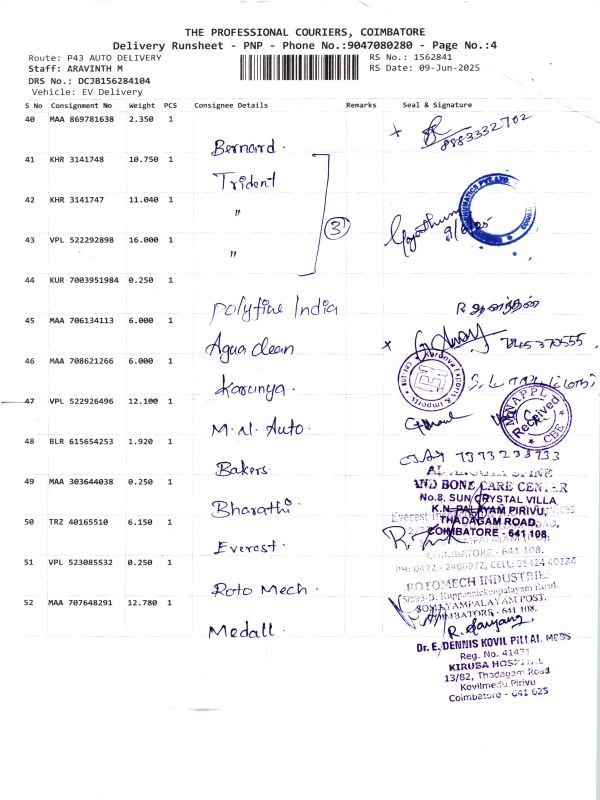 THE PROFESSIONAL COURIERS, COIMBATORE
Delivery Runsheet - PNP - Phone No.:9047080280 - Page No.:4
Route: P43 AUTO DELIVERY
RS No.: 1562841
Staff: ARAVINTH M
RS Date: 09-Jun-2025
DRS No.: DCJB156284104
Vehicle: EV Delivery
S No Consignment No Weight PCS Consignee Details Remarks Seal & Signature
40 MAA 869781638 2.350 1
8883332702
Bernard.
41 KHR 3141748 10.750 1
Trident
42 KHR 3141747 11.040 1
"
3
43 VPL 522292898 16.000 1
"
44 KUR 7003951984 0.250 1
Polyfine India
45 MAA 706134113 6.000 1
Aqua clean
46 MAA 708621266 6.000 1
Karunya.
47 VPL 522926496 12.100 1
Received
CBE
M.N. Auto.
48 BLR 615654253 1.920 1
Bakers
49 MAA 303644038 0.250 1
AND BONE CARE CENTER
No.8, SUN CRYSTAL VILLA
K.N. PALAYAM PIRIVU,
THADAGAM ROAD,
COIMBATORE - 641 108.
Bharathi.
50 TRZ 40165510 6.150 1
Everest.
51 VPL 523085532 0.250 1
COIMBATORE - 641 108.
ROTOMECH INDUSTRIES
Roto Mech.
52 MAA 707648291 12.780 1
SOMAYAMPALAYAM POST.
COIMBATORE - 641 108.
Medall.
Dr. E. DENNIS KOVIL PILLAI. MBBS
Reg. No. 41431
KIRUBA HOSPITAL
13/82, Thadagam Road
Kovilmedu Pirivu
Coimbatore - 641 025